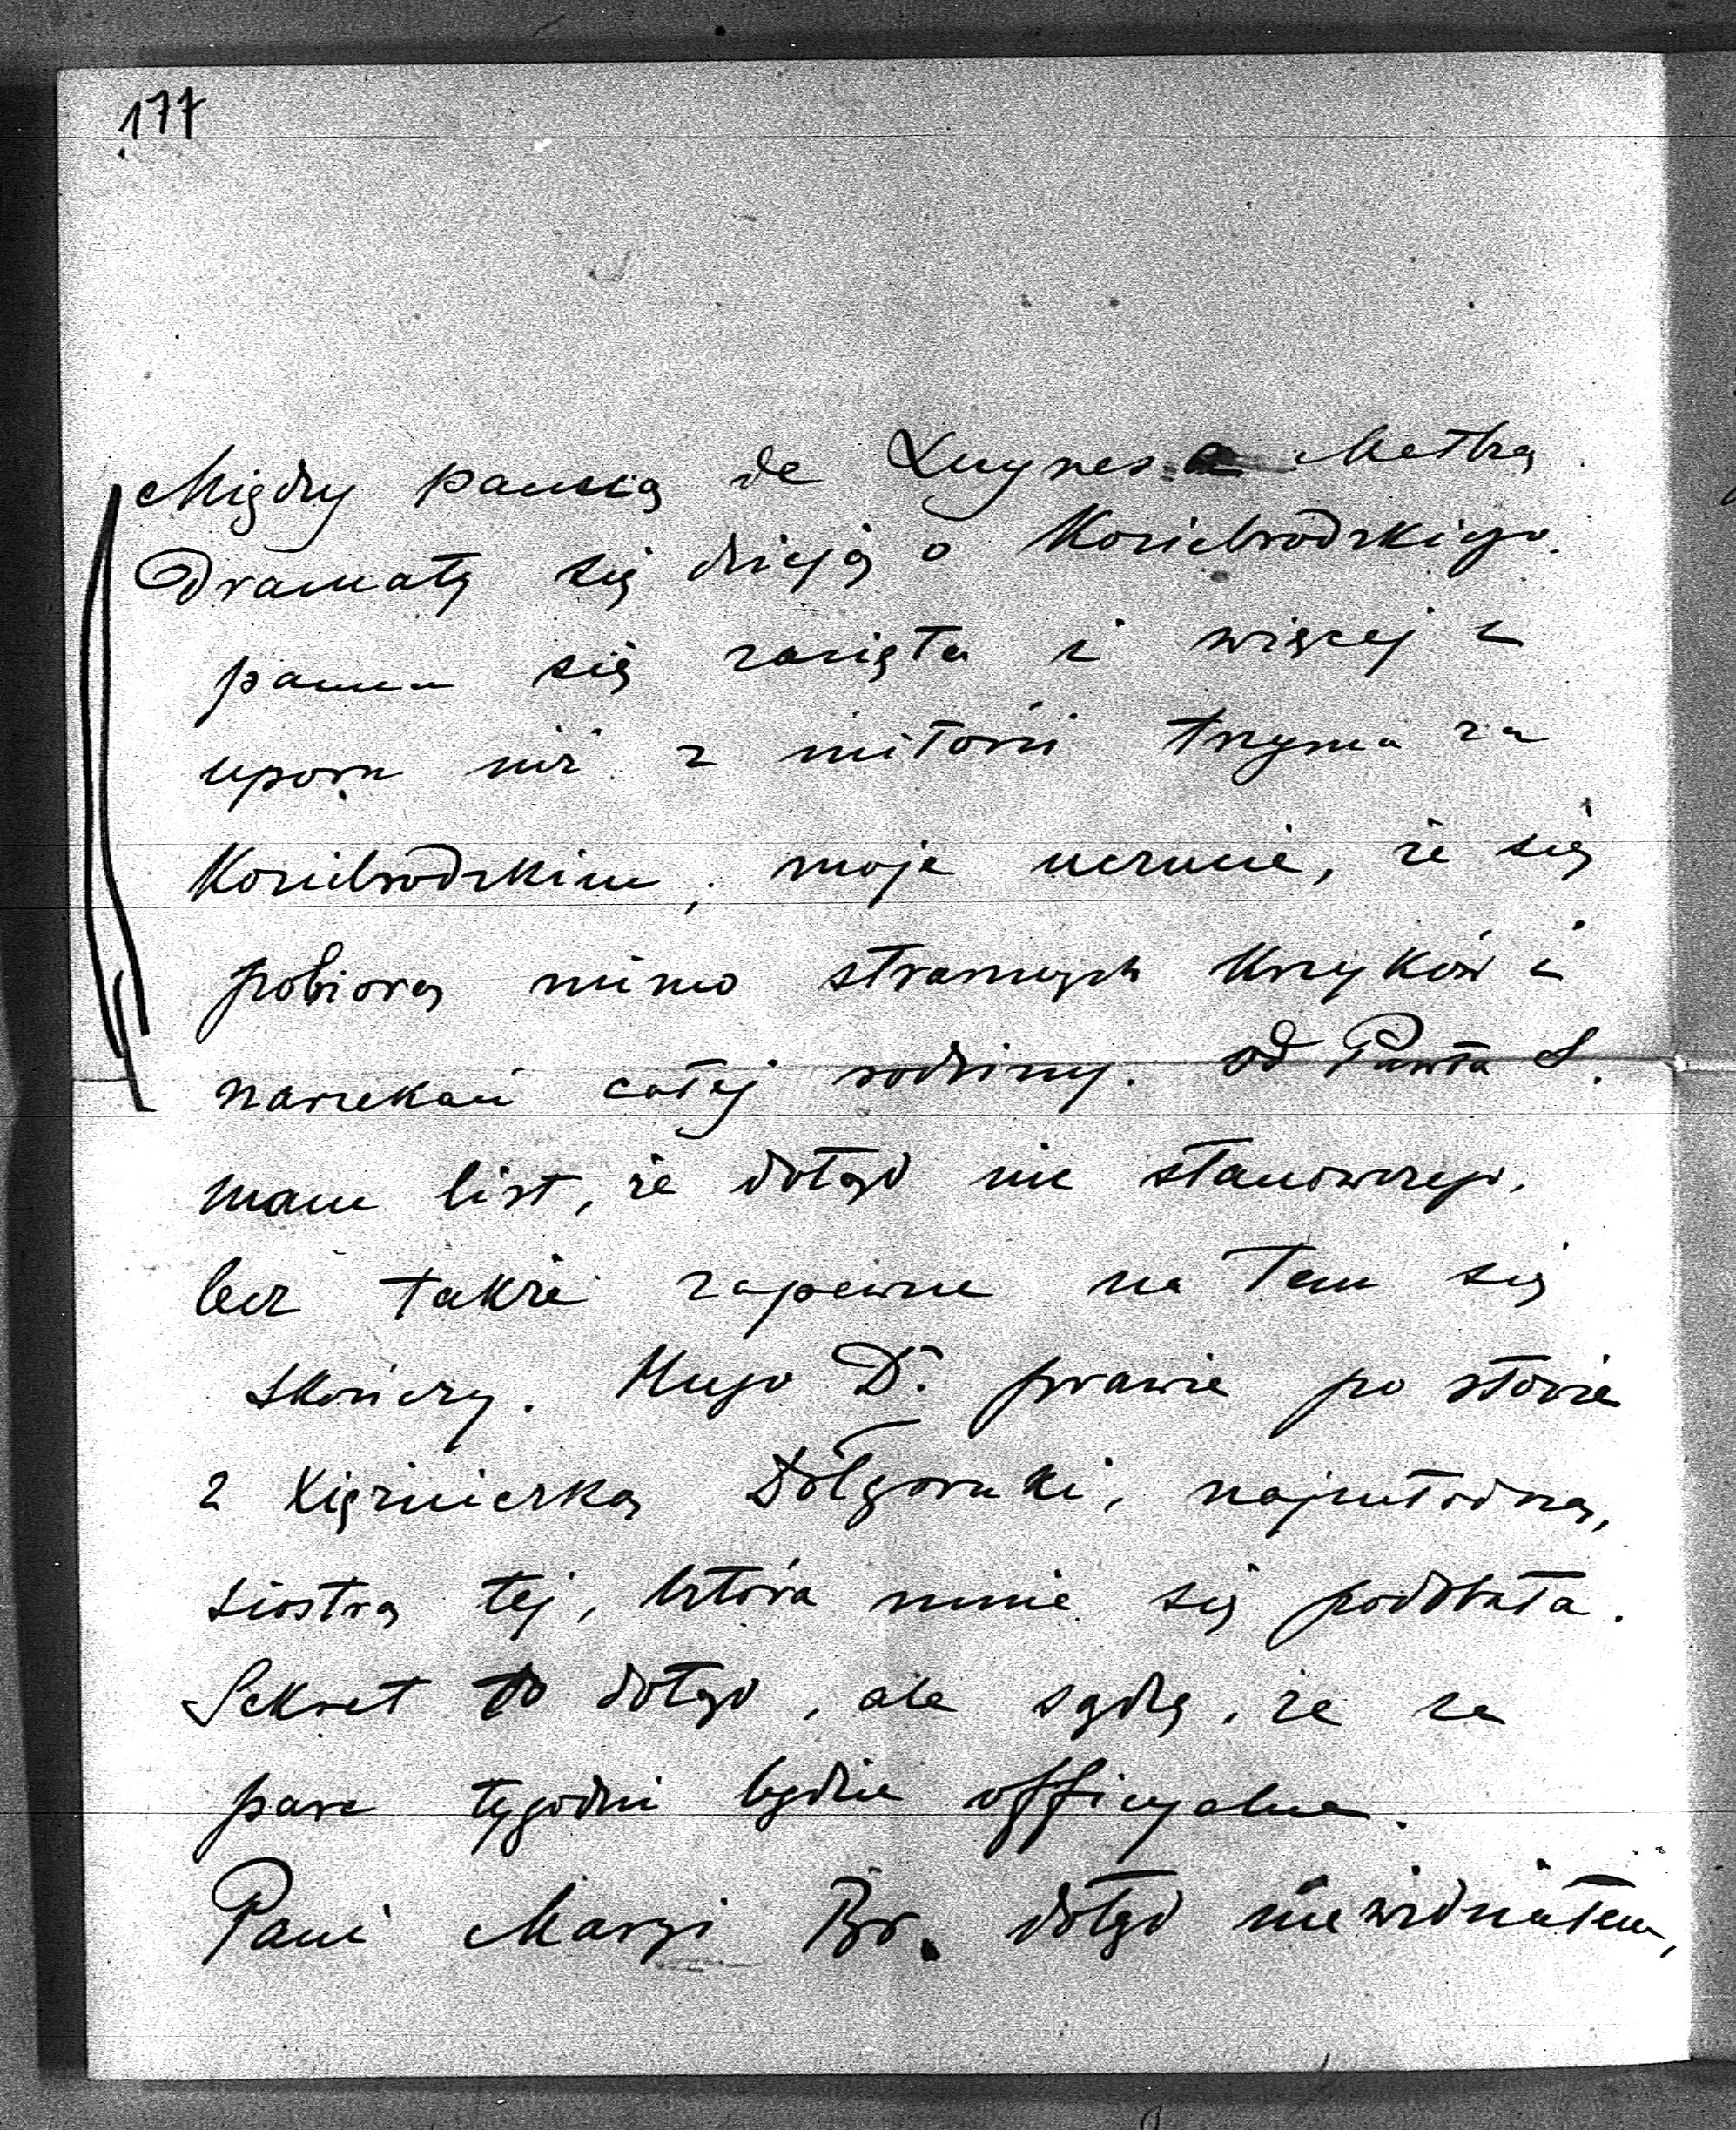 177
Między panną de Luynes a Matką
Dramaty się dzieją o Koziebrodzkiego.
panna się zacięła i więcej z
uporu niż z miłości trzyma za
Koziebrodzkim, moje uczucie, że się
pobiorą mimo strasznych krzyków i
narzekań całej rodziny. od Pawła S.
mam list, że dotąd nic stanowczego,
lecz także zapewne na tem się
skończy. Hugo D. prawie po słowie
z Xiężniczką Dołgoruki, najmłodszą,
siostrą tej, która mnie się podobała.
Sekret to dotąd, ale sądzę, że za
parę tygodni będzie officyalne.
Pani Maryi Br. dotąd nie widziałem,